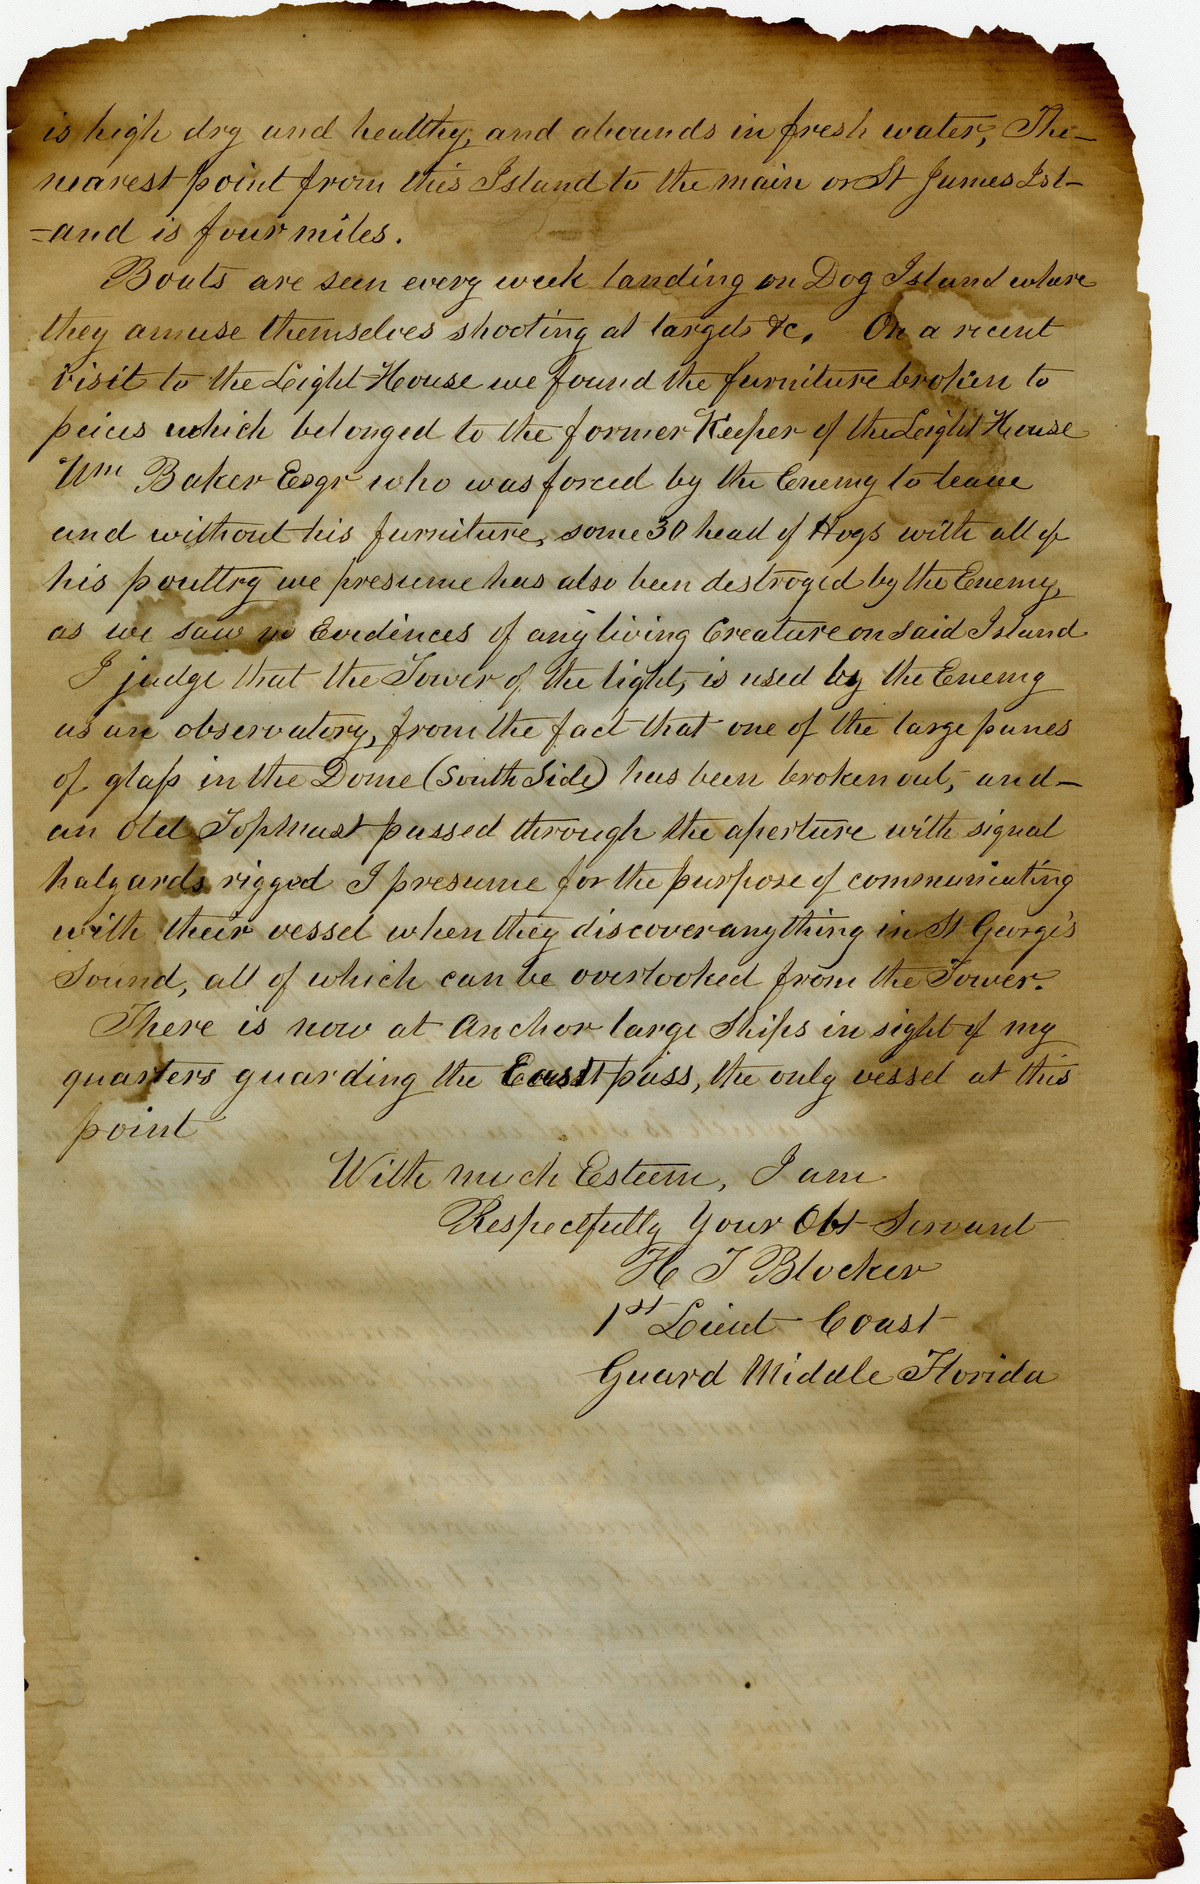 is high dry and healthy, and abounds in fresh water, The
nearest point from this Island to the main or St James Isl-
=and is four miles.
Boats are seen every week landing on Dog Island where
they amuse themselves shooting at targets &c. On a recent
visit to the Light House we found the furniture broken to
peices which belonged to the former Keeper of the Light House
Wm Baker Esqr who was forced by the Enemy to leave
and without his furniture, some 30 head of Hogs with all of
his poultry we presume has also been destroyed by the Enemy,
as we saw no Evidences of any living Creature on said Island
I judge that the Tower of the light, is used by the Enemy
as an observatory, from the fact that one of the large panes
of glass in the Dome (South Side) has been broken out, and-
an Old Topmast passed through the aperture with signal
halyards rigged I presume for the purpose of communicating
with their vessel when they discover anything in St George's
Sound, all of which can be overlooked from the Tower.
There is now at Anchor large Ships in sight of my
quarters guarding the East pass, the only vessel at this
point
With much Esteem, I am
Respectfully Your Obt Servant
H T Blocker
1st Lieut Coast
Guard Middle Florida